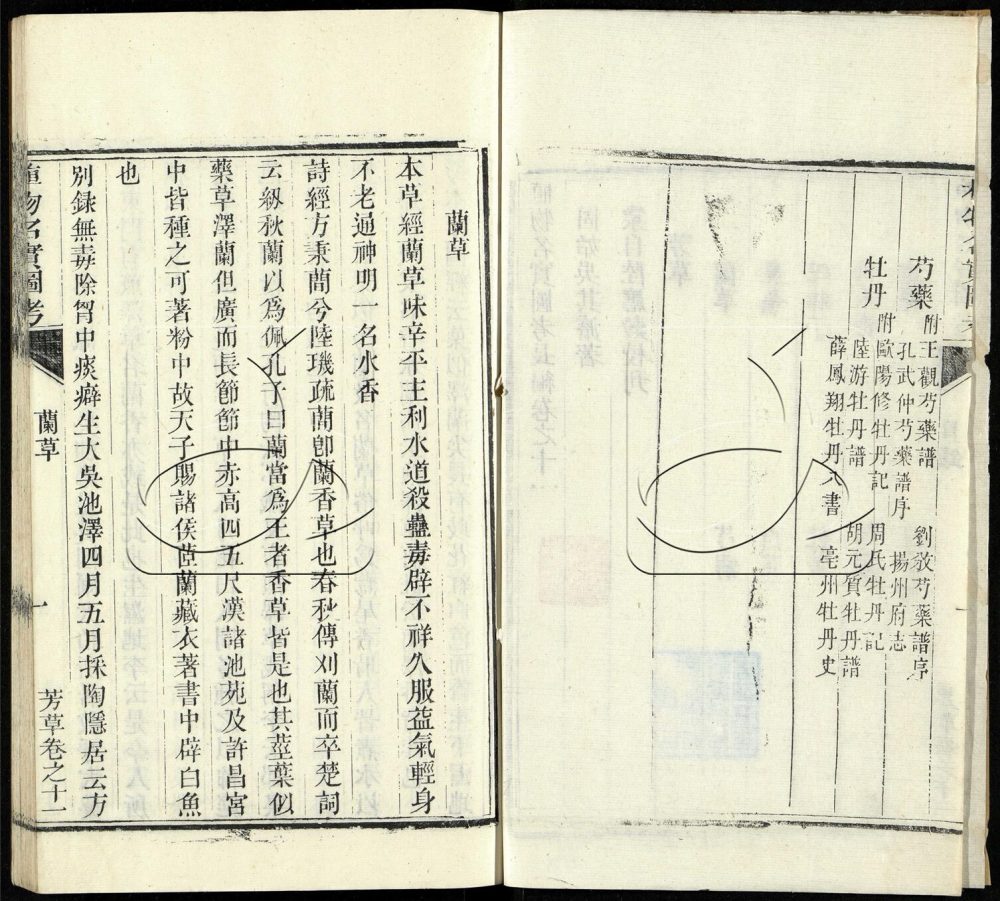 芍藥 附王觀芍藥譜 劉攽芍藥譜序
孔武仲芍藥譜序 揚州府志
牡丹 附歐陽修牡丹記 周氏牡丹記
陸游牡丹譜 胡元質牡丹譜
薛鳳翔牡丹八書 亳州牡丹史
蘭草
本草經蘭草味辛平主利水道殺蠱毒辟不祥久服益氣輕身
不老通神明一名水香
詩經方秉蕑兮陸璣疏蕑卽蘭香草也春秋傳刈蘭而卒楚詞
云紉秋蘭以爲佩孔子曰蘭當爲王者香草皆是也其莖葉似
藥草澤蘭但廣而長節節中赤高四五尺漢諸池苑及許昌宮
中皆種之可著粉中故天子賜諸侯茝蘭藏衣著書中辟白魚
也
別錄無毒除胷中痰癖生大吳池澤四月五月採陶隱居云方
植物名實圖考 蘭草 一 芳草卷之十一